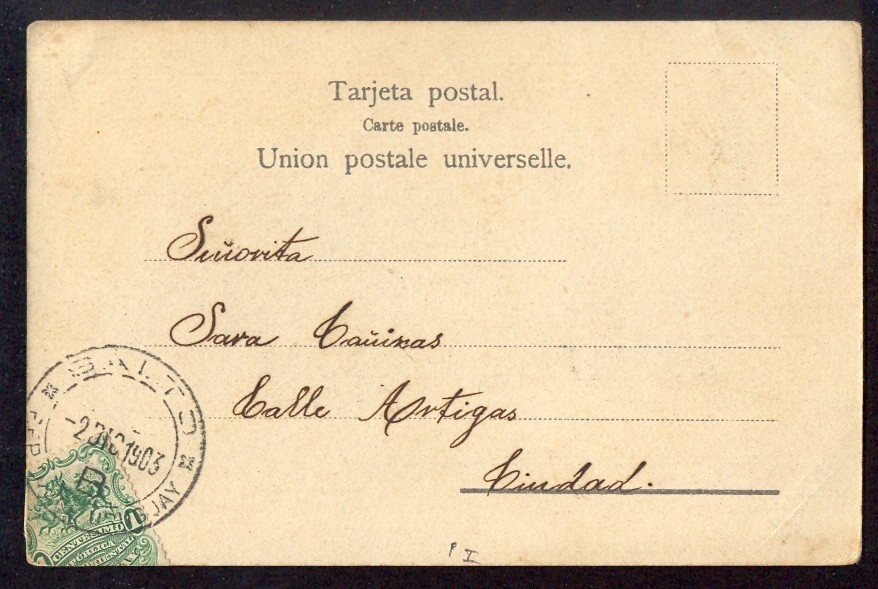 Tarjeta postal.
Carte postale.
Union postale universelle.
Señorita
Sara Cañizas
Calle Artigas
Ciudad.
SALTO
-2 DIC 1903
B
CENTESIMO
P I